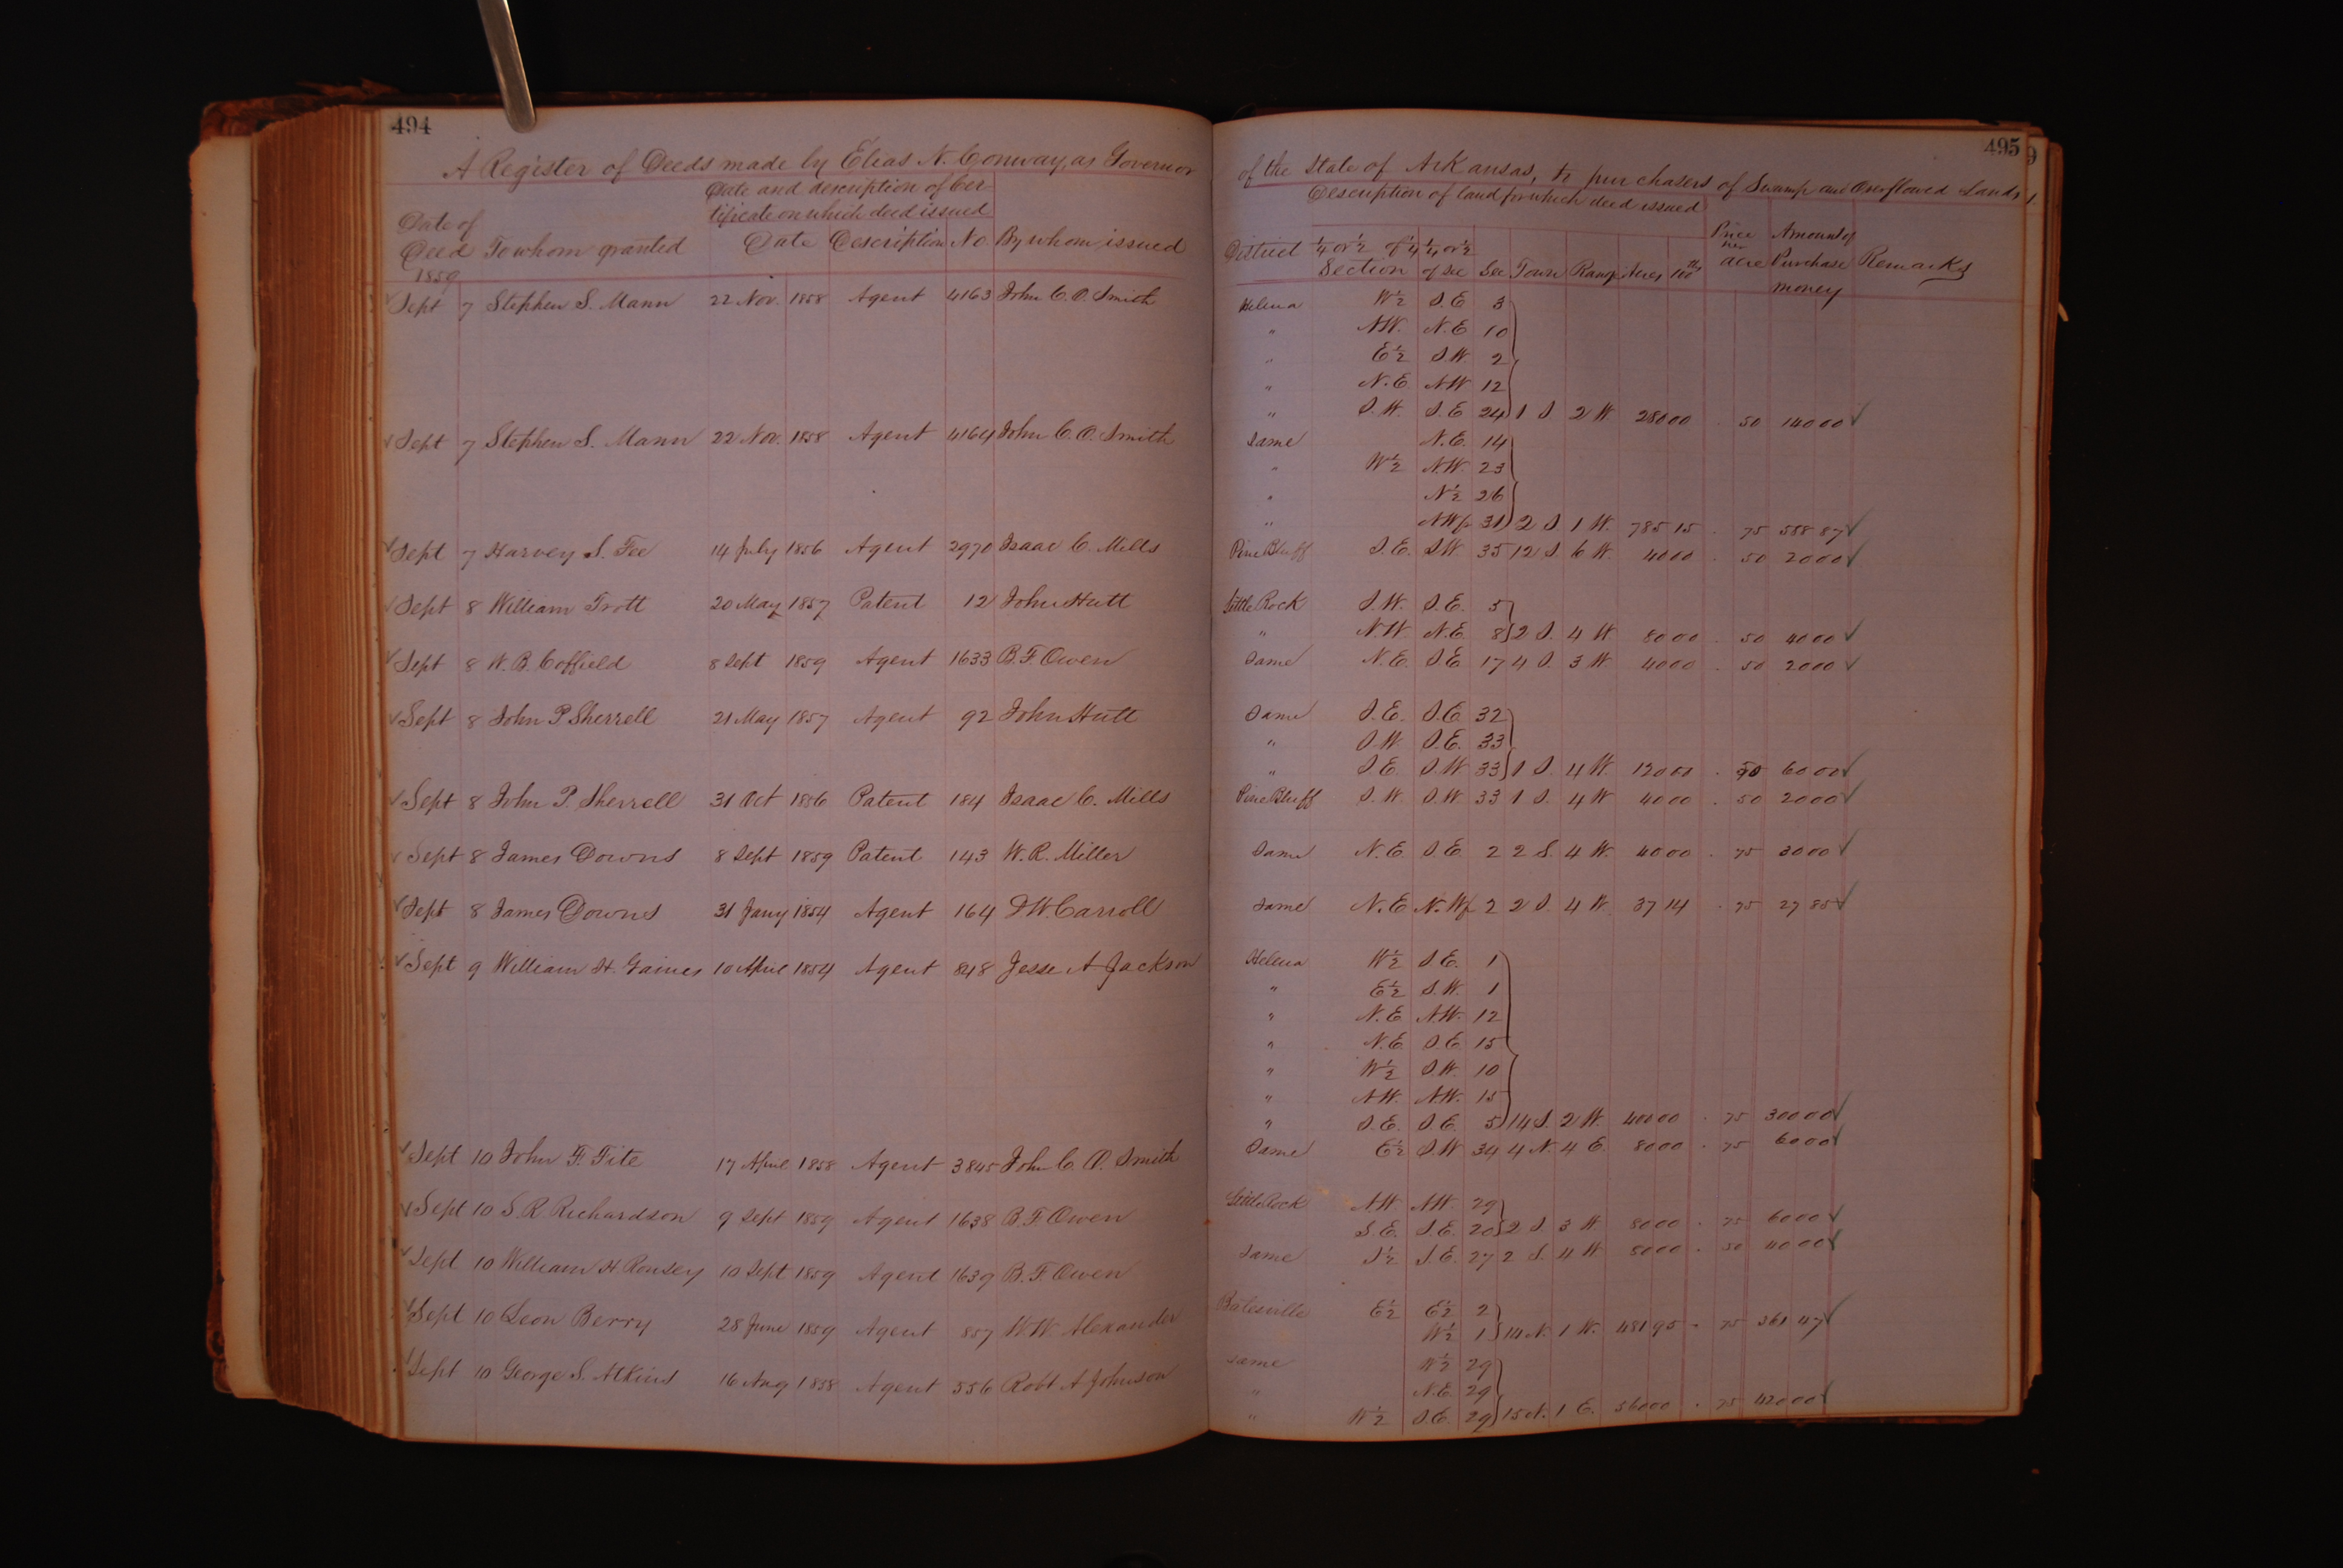 494
A Register of Deeds made by Elias N. Conway, as Governor
Date and description of Cer-
tificate on which deed issued
Date of
Deed To whom granted Date Description No. By whom issued
1859
Sept 7 Stephen S. Mann 22 Nov. 1858 Agent 4163 John C. O. Smith
Sept 7 Stephen S. Mann 22 Nov. 1858 Agent 4164 John C. O. Smith
Sept 7 Harvey S. Fee 14 July 1856 Agent 2970 Isaac C. Mills
Sept 8 William Trott 20 May 1857 Patent 12 John Hutt
Sept 8 W. B. Coffield 8 Sept 1859 Agent 1633 B. F. Owen
Sept 8 John P Sherrell 21 May 1857 Agent 92 John Hutt
Sept 8 John P. Sherrell 31 Oct 1856 Patent 184 Isaac C. Mills
Sept 8 James Downs 8 Sept 1859 Patent 143 W. R. Miller
Sept 8 James Downs 31 Jany 1854 Agent 164 D W. Carroll
Sept 9 William H. Gaines 10 April 1854 Agent 848 Jesse A Jackson
Sept 10 John F. Fite 17 April 1858 Agent 3845 John C. O. Smith
Sept 10 S. R. Richardson 9 Sept 1859 Agent 1638 B. F. Owen
Sept 10 William H Rousey 10 Sept 1859 Agent 1639 B. F. Owen
Sept 10 Leon Berry 28 June 1859 Agent 857 W. W. Alexander
Sept 10 George S. Atkins 16 Aug 1858 Agent 556 Robt A Johnson
495
of the State of Arkansas, to purchasers of Swamp and Overflowed Lands
Description of land for which deed issued
District ¼ or ½ of ¼ ¼ or ½ Price per Amount of
Section of Sec Sec Town Range Acres 100ths acre Purchase Remarks
money
Helena W½ S.E 3
" N.W. N.E 10
" E½ S.W. 2
" N.E. N.W 12
" S.W. S.E 24 1 S. 2 W 280 00 . 50 140 00 ✓
Same N.E. 14
" W½ N.W. 23
" N½ 26
" N.W fr 31 2 S 1 W. 785 15 . 75 588 87 ✓
Pine Bluff S.E. S.W. 35 12 S. 6 W. 40 00 . 50 20 00 ✓
Little Rock S.W. S.E. 5
" N.W N.E 8 2 S. 4 W 80 00 . 50 40 00 ✓
Same N.E. S.E 17 4 S. 3 W 40 00 . 50 20 00 ✓
Same S.E. S.E. 32
" S.W S.E. 33
" S.E. S.W 33 1 S. 4 W. 120 00 . 50 60 00 ✓
Pine Bluff S.W. S.W 33 1 S. 4 W 40 00 . 50 20 00 ✓
Same N.E. S.E. 2 2 S. 4 W. 40 00 . 75 30 00 ✓
Same N.E N.W fr 2 2 S. 4 W. 37 14 . 75 27 85 ✓
Helena W½ S.E. 1
" E½ S.W. 1
" N.E N.W. 12
" N.E S.E 15
" W½ S.W. 10
" N.W. N.W. 15
" S.E. S.E. 5 14 S. 2 W. 400 00 . 75 300 00 ✓
Same E½ S.W 34 4 N. 4 E. 80 00 . 75 60 00 ✓
Little Rock N.W. N.W. 29
S.E. S.E. 20 2 S. 3 W. 80 00 . 75 60 00 ✓
Same S½ S.E. 27 2 S. 4 W 80 00 . 50 40 00 ✓
Batesville E½ E½ 2
W½ 1 14 N. 1 W. 481 95 . 75 361 47 ✓
Same W½ 29
" N.E. 29
" W½ S.E. 29 15 N. 1 E. 560 00 . 75 420 00 ✓